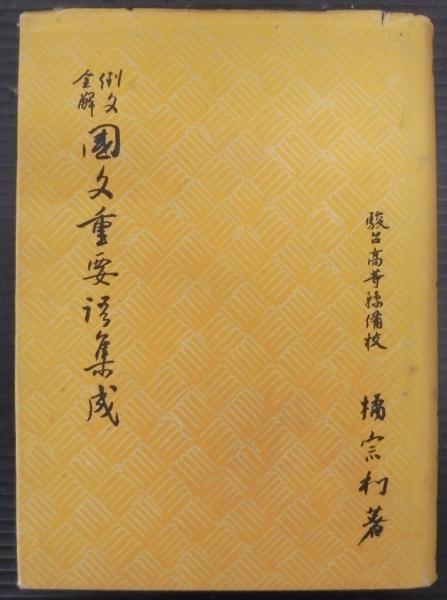 駿台高等豫備校
橘宗利著
例文
全解
國文重要語集成